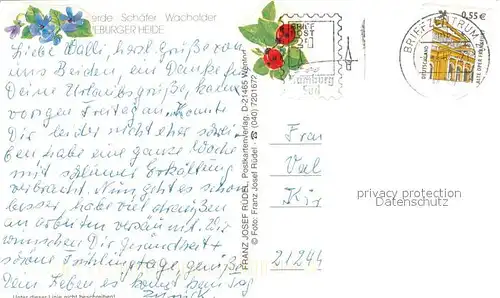 erde Schäfer Wacholder
EBURGER HEIDE
Liebe Walli, herzl. Grüße von
uns Beiden, ein Danke für
Deine Urlaubsgrüße, kam
vorigen Freitag an. Konnte
Dir leider nicht eher schrei-
ben habe eine ganze Woche
mit schlimmer Erkältung
verbracht. Nun geht es schon
besser, habe viel draußen
an arbeiten versäumt. Wir
wünschen Dir Gesundheit +
schöne Frühlingstage, genieße
Dein Leben es kommt kein Tag
zurück
Unter dieser Linie nicht beschreiben!
FRANZ JOSEF RÜDEL, Postkartenverlag, D-21465 Wentorf
© Foto: Franz Josef Rüdel · ☎ (040) 7201672
BRIEF
POST
21
Hamburg
Süd
BRIEFZENTRUM
0,55 €
DEUTSCHLAND
ALTE OPER FRANKFURT
Frau
21244
privacy protection
Datenschutz